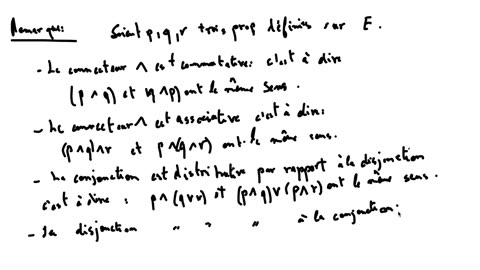 Remarque: Soient p, q, r trois prop définies sur E.
- Le connecteur ∧ est commutative: c'est à dire
(p ∧ q) et (q ∧ p) ont le même sens.
- Le connecteur ∧ est associative c'est à dire:
(p ∧ q) ∧ r et p ∧ (q ∧ r) ont le même sens.
- La conjonction est distributive par rapport à la disjonction
c'est à dire : p ∧ (q ∨ r) et (p ∧ q) ∨ (p ∧ r) ont le même sens.
- La disjonction " " " à la conjonction;